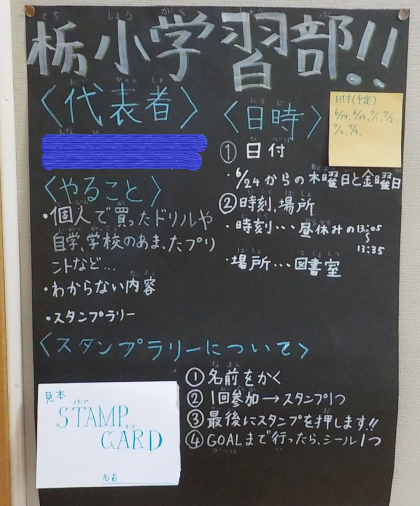 栃小学習部!!
〈代表者〉
〈やること〉
・個人で買ったドリルや
自学、学校のあまったプリ
ントなど…
・わからない内容
・スタンプラリー
〈日時〉
①日付
・6/24からの木曜日と金曜日
②時刻、場所
・時刻…昼休みの13:05
〜
13:35
・場所…図書室
日付(予定)
〈スタンプラリーについて〉
見本
STAMP
CARD
名前
①名前をかく
②1回参加→スタンプ1つ
③最後にスタンプを押します!!
④GOALまで行ったら、シール1つ